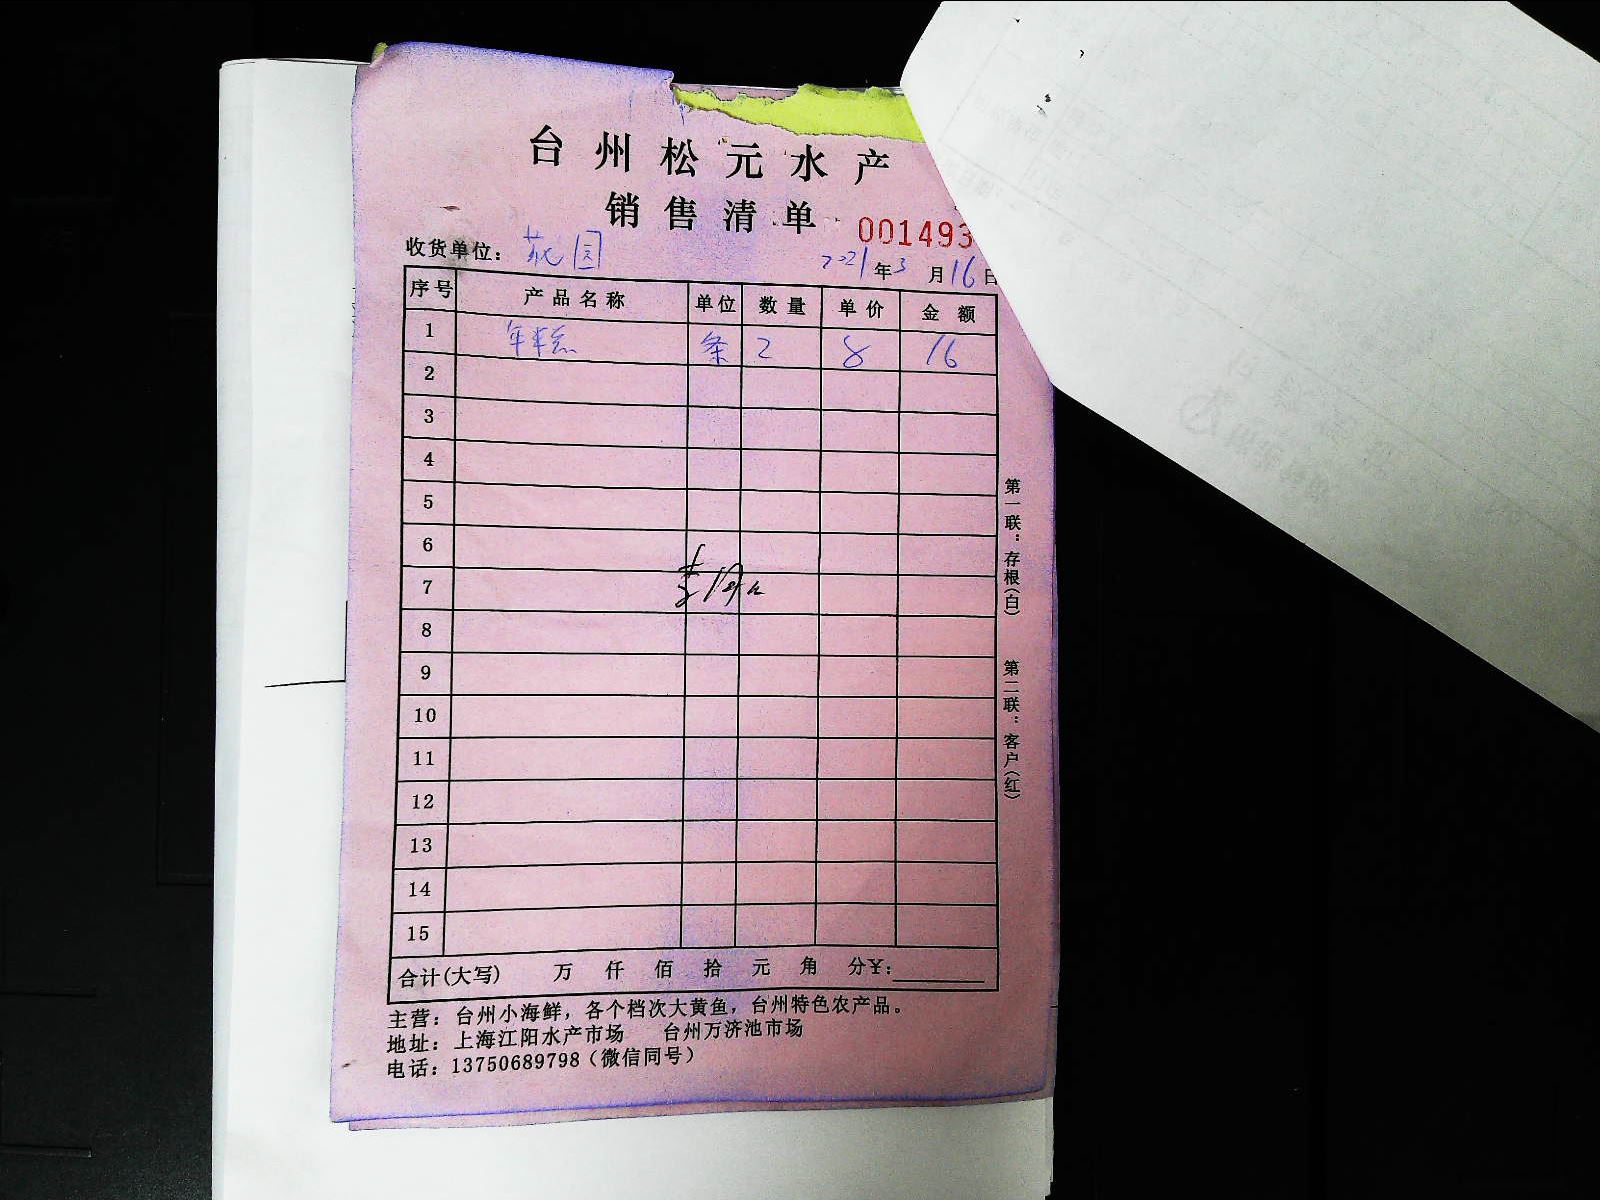 台州松元水产
销售清单 001493
收货单位：花园 2021年3月16日
序号 产品名称 单位 数量 单价 金额
1 年糕 条 2 8 16
2
3
4
5
6
7
8
9
10
11
12
13
14
15
合计(大写) 万 仟 佰 拾 元 角 分¥：
主营：台州小海鲜，各个档次大黄鱼，台州特色农产品。
地址：上海江阳水产市场 台州万济池市场
电话：13750689798（微信同号）
第一联：存根（白）
第二联：客户（红）